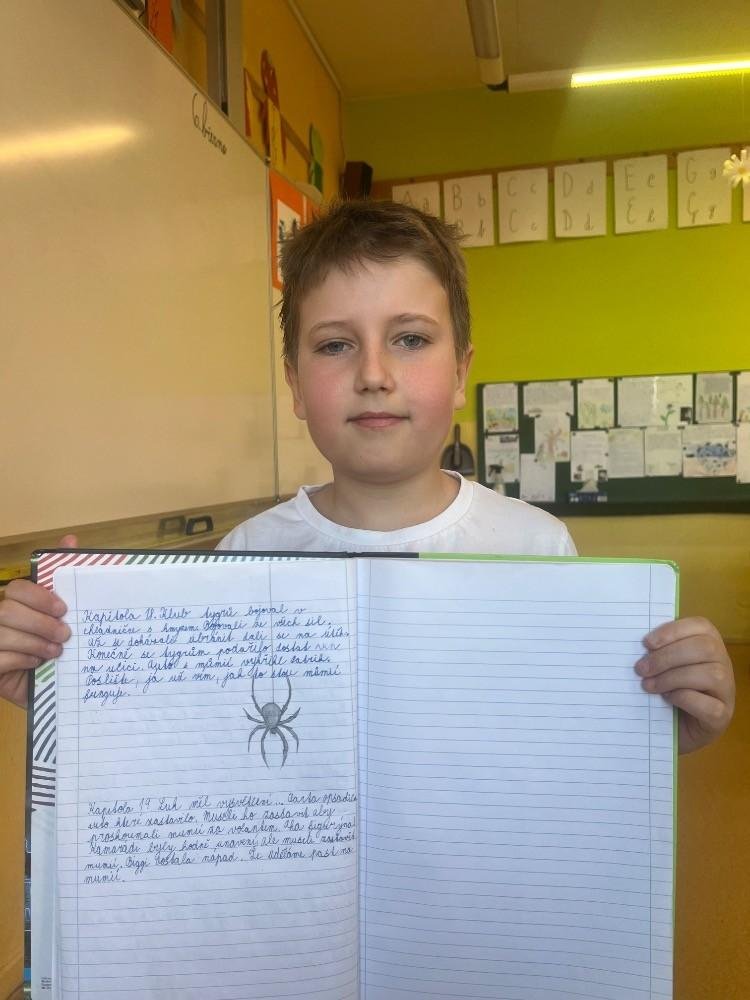 6. března
Aa
Bb
Bb
Cc
Cc
Dd
Dd
Ee
Ee
Gg
Gg
Kapitola 18. Klub tygrů bojoval v
chladničce s hmyzem. Bojovali ze všech sil.
Až se dokázali ubránit dali se na útěk.
Konečně se tygrům podařilo dostat ven
na ulici. Auto s mumií vyjíždí
Poslyšte, já už vím, jak to s tou mumií
funguje.
Kapitola 19. Luk měl vysvětlení... Parta
auto které zastavilo. Museli ho zastavit aby
prozkoumali mumii za volantem.
Kamarádi byly hodně unavení ale museli zastavit
mumii. Biggi dostala nápad. Že uděláme past na
mumii.